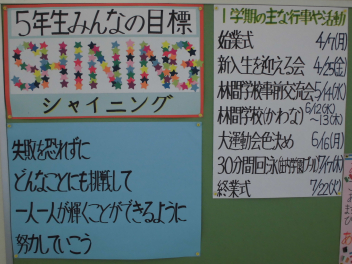 5年生みんなの目標
SHINING
シャイニング
失敗を恐れずに
どんなことにも挑戦して
一人一人が輝くことができるように
努力していこう
1学期の主な行事や活動
始業式 4/7(月)
新入生を迎える会 4/25(金)
林間学校事前交流会 5/14(水)
林間学校(かわな) 6/12(木)
～13(木)
大運動会色決め 6/16(月)
30分間回泳 7/17(木)
終業式 7/22(火)